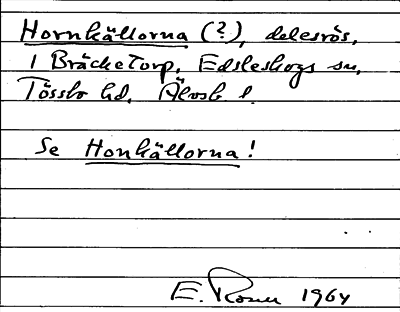 Hornkällorna (?), delesrös,
i Bräcketorp, Edsleskogs sn,
Tössbo hd, Älvsb l.
Se Honkällorna!
E. Rosén 1964